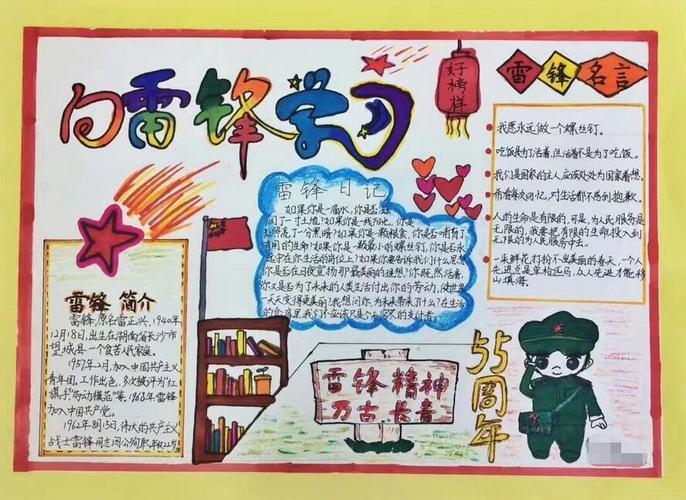 向雷锋学习
好榜样
雷锋名言
我愿永远做一个螺丝钉。
吃饭是为了活着,但活着不是为了吃饭。
我们是国家的主人应该处处为国家着想。
人的生命是有限的,可是,为人民服务是
无限的,我要把有限的生命投入到
无限的为人民服务中去。
一朵鲜花打扮不出美丽的春天,一个人
先进总是单枪匹马,众人先进才能移
山填海。
雷锋日记
如果你是一滴水,你是否滋
润了一寸土地?如果你是一线阳光,你是
否照亮了一分黑暗?如果你是一颗粮食,你是否哺育了
有用的生命?如果你是一颗最小的螺丝钉,你是否永
远守在你生活的岗位上?如果你要告诉我们什么思想
你是否在日夜宣扬那最美丽的理想?你既然活着,
你又是否为了未来的人类生活付出你的劳动,使世界
一天天变得更美丽?我想问你,为未来带来了什么?在生活
的仓库里,我们不应该只是个无穷尽的支付者。
雷锋简介
雷锋,原名雷正兴,1940年
12月18日,出生在湖南省长沙市
望城县一个贫苦人民家庭。
1957年2月,加入中国共产主义
青年团,工作出色,多次被评为“红
旗手”劳动模范”等,1960年雷锋
加入中国共产党。
1962年8月15日,伟大的共产主义
战士雷锋同志因公殉职,年仅22岁。
雷锋精神
万古长青
55周年